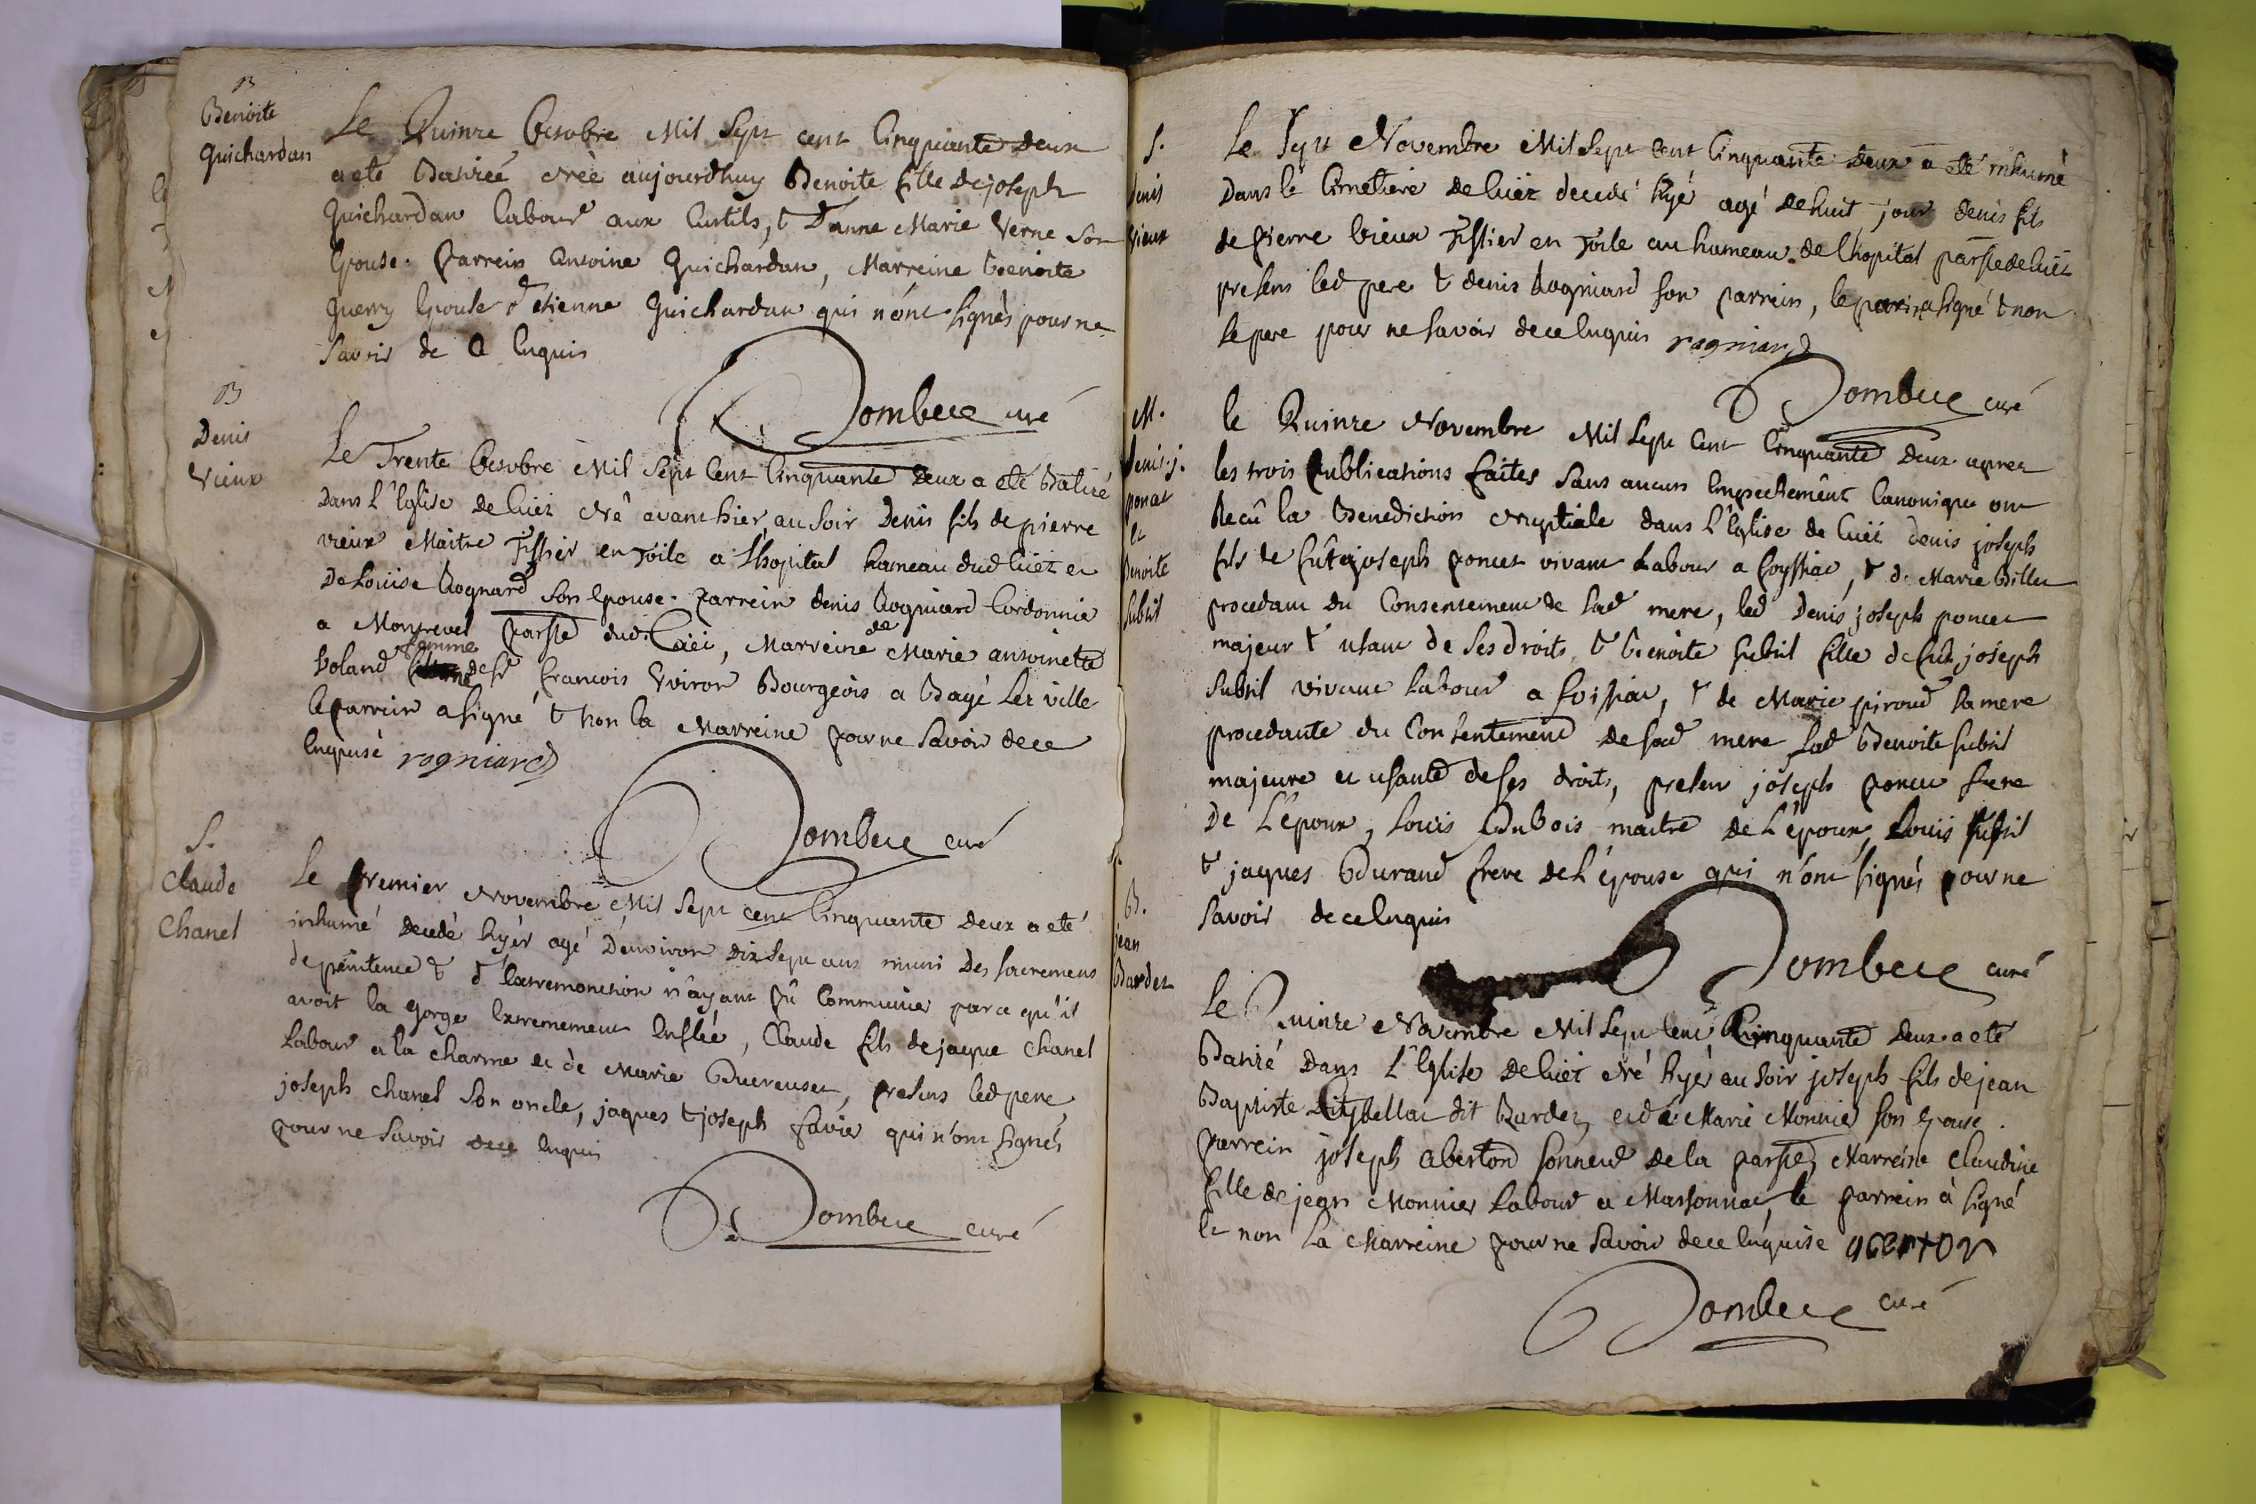 B
Benoite
Guichardan
Le Quinze Octobre Mil Sept cent Cinquante Deux
a eté Batizée Née aujourdhuy Benoite fille de joseph
Guichardan labour aux Curtils, & D'anne Marie Verne Son
Epouse. Parrein Antoine Guichardan, Marreine Benoite
Guerry Epouse d'etienne Guichardan qui n'ont signés pour ne
Savoir de ce Enquis
Dombece curé
B
Denis
Vieux
Le Trente Octobre Mil Sept Cent Cinquante Deux a eté Batizé
Dans L'Eglise de Cuiët Né avant hier au Soir Denis fils de pierre
vieux Maitre Tissier en Toile a l'hopital hameau dud Cuiët et
De Loüise Rognard Son Epouse. Parrein denis Rogniard Cordonnie
a Montrevel parsse dud. Cuiët, Marreine de Marie antoinette
Voland femme de sr francois Vviron Bourgeois a Bagé Lez ville
le parrein a signé & non la Marreine pour ne Savoir de ce
Enquise rogniard
Dombece curé
S.
Claude
Chanel
Le Premier Novembre Mil Sept cent Cinquante Deux a eté
inhumé decedé hyér agé D'environ dix Sept ans muni Des Sacremens
de penitence & d'Extremonction n'ayant Pû Communier parce qu'il
avoit la gorge Extrememeut Enflée, Claude fils de jaque Chanel
Labour a la charme et de Marie Buereuset, presens led pere
joseph Chanel Son oncle, jaques & joseph favier qui n'ont signés
pour ne Savoir de ce enquis
Dombece curé
S.
denis
Vieux
Le Sept Novembre Mil Sept Cent Cinquante Deux a eté inhumé
Dans le Cimetiere de Cuiët decedé hyé agé de huit jour denis fils
de pierre Vieux Tissier en Toile au hameau de Lhopital parsse de Cuiët
presens led pere & denis Rogniard son parrein, le parrein a signé & non
le pere pour ne Savoir de ce Enquis rogniard
Dombece curé
M.
Denis j.
poncet
et
Benoite
Subtil
le Quinze Novembre Mil Sept Cent Cinquante Deux apres
les trois Publications faites Sans aucun Empechement Canonique ont
Recû la Benediction Nuptiale dans L'Eglise de Cuiët denis joseph
fils de fût joseph poncet vivant Labour a foyssiac, & de Marie Billet
procedant du Consentement de Sad mere, led Denis joseph poncet
majeur & usant de Ses droits, & Benoite Subtil fille de fut joseph
Subtil vivant labour a foissiac, & de Marie piroud Sa mere
procedante du Consentement de Sad mere lad Benoite Subtil
majeure et usante de Ses droits, presens joseph poncet frere
De L'époux, Louis Dubois maitre de L'époux, Louis Subtil
& jaques Durand frere de L'épouse qui n'ont signés pour ne
Savoir de ce Enquis
Dombece curé
B.
jean
Bardet
Le Quinze Novembre Mil Sept Cent Cinquante Deux a eté
Batizé Dans L'Eglise de Cuiët Né hyér au Soir joseph fils de jean
Baptiste dit Bardet et de Marie Monnier Son Epouse.
Parrein joseph Sonneur de la parsse, Marreine Claudine
fille de jean Monnier Labour a Marsonnac, le parrein à signé
et non la Marreine pour ne Savoir de ce Enquise
Dombece curé